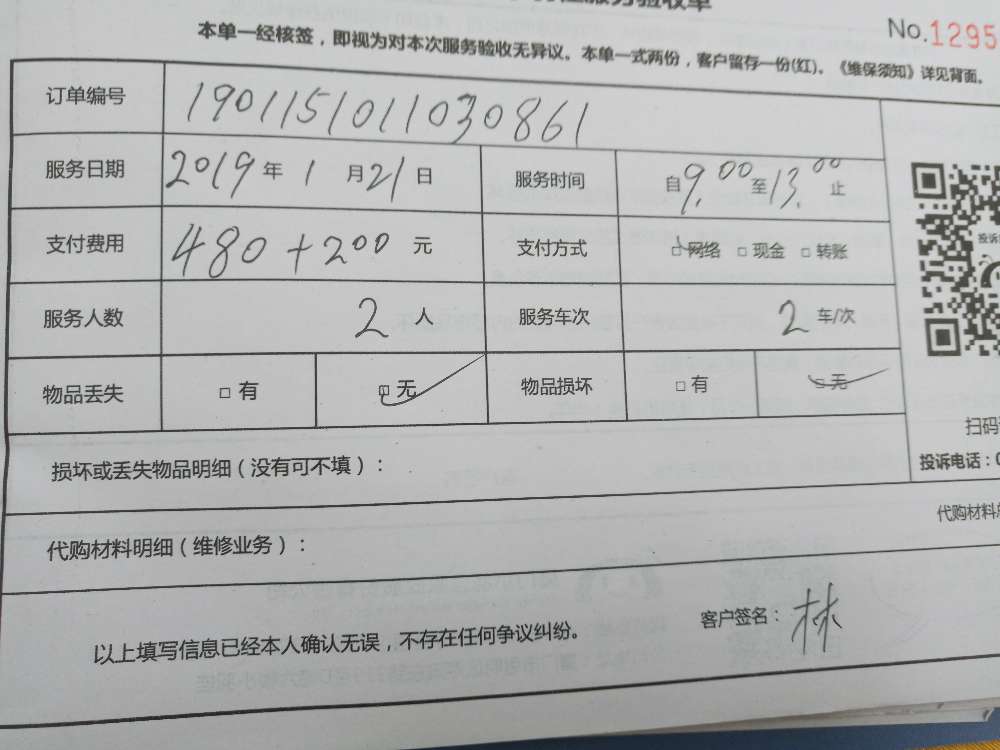 服务验收单
No.1295
本单一经核签，即视为对本次服务验收无异议。本单一式两份，客户留存一份(红)。《维保须知》详见背面。
订单编号 190115101103086​1
服务日期 2019年1月21日 服务时间 自9.00至13.00止
支付费用 480+200元 支付方式 □网络 □现金 □转账
服务人数 2人 服务车次 2车/次
物品丢失 □有 □无 物品损坏 □有 □无
投诉
扫码
投诉电话：0
损坏或丢失物品明细（没有可不填）：
代购材料
代购材料明细（维修业务）：
以上填写信息已经本人确认无误，不存在任何争议纠纷。 客户签名：林